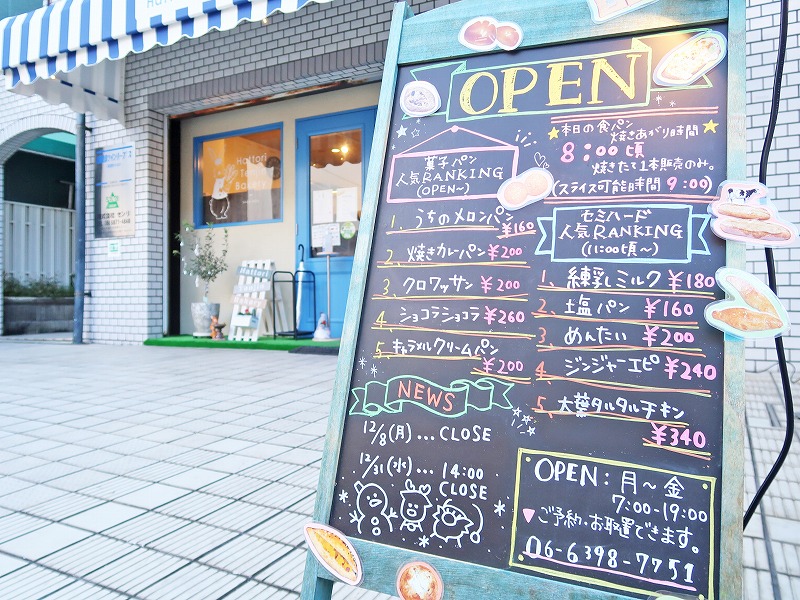 Hattori
OPEN
本日の食パン
焼きあがり時間
8:00頃
焼きたて1本販売のみ。
(スライス可能時間 9:00)
菓子パン
人気RANKING
(OPEN～)
1. うちのメロンパン
¥160
2. 焼きカレーパン ¥200
3. クロワッサン ¥200
4. ショコラショコラ ¥260
5. キャラメルクリームパン
¥200
セミハード
人気RANKING
(11:00頃～)
1. 練乳ミルク ¥180
2. 塩パン ¥160
3. めんたい ¥200
4. ジンジャーエピ ¥240
5. 大葉タルタルチキン
¥340
NEWS
12/8(月)... CLOSE
12/31(水)... 14:00
CLOSE
OPEN:月～金
7:00-19:00
♥ご予約・お取置できます。
06-6398-7751
Hattori
Bakery
Hattori